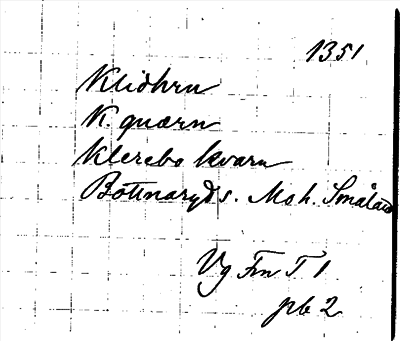 1351
Kliöhrn
K. quærn
Klerebo kvarn
Bottnaryds. Moh. Småland
Vg Frn T 1
pb 2